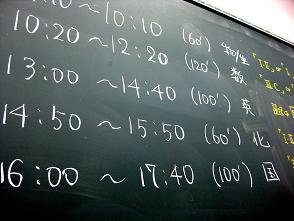 10~10:10 (60') 物/生
10:20~12:20 (120') 数 「I・II,α」
13:00~14:40 (100') 英 「IIC,α
14:50~15:50 (60') 化 「I
16:00~17:40 (100') 国